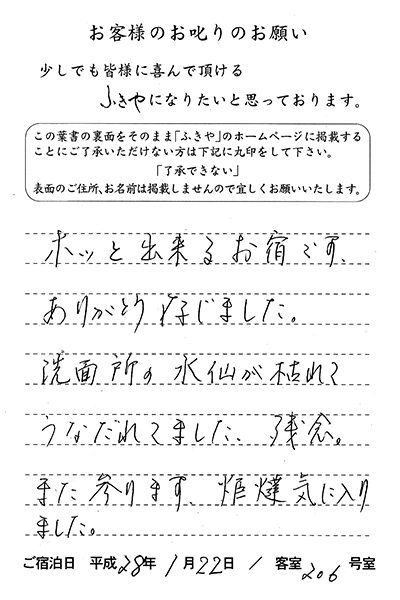 お客様のお叱りのお願い
少しでも皆様に喜んで頂ける
ふきやになりたいと思っております。
この葉書の裏面をそのまま「ふきや」のホームページに掲載する
ことにご了承いただけない方は下記に丸印をして下さい。
「了承できない」
表面のご住所、お名前は掲載しませんので宜しくお願いいたします。
ホッと出来るお宿です、
ありがとう存じました。
洗面所の水仙が枯れて
うなだれてました、残念。
また参ります、炉燵気に入り
ました。
ご宿泊日 平成28年 1月22日 / 客室 206 号室